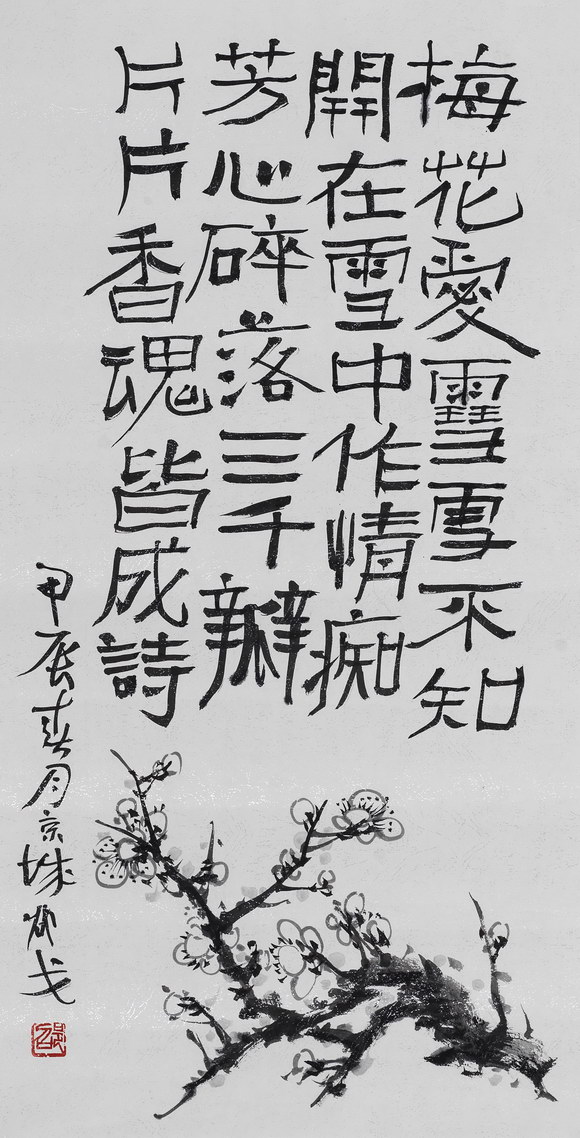 梅花愛䨮雪不知
開在雪中作情痴
芳心碎落三千瓣
片片香魂皆成詩
甲辰春月京城戈